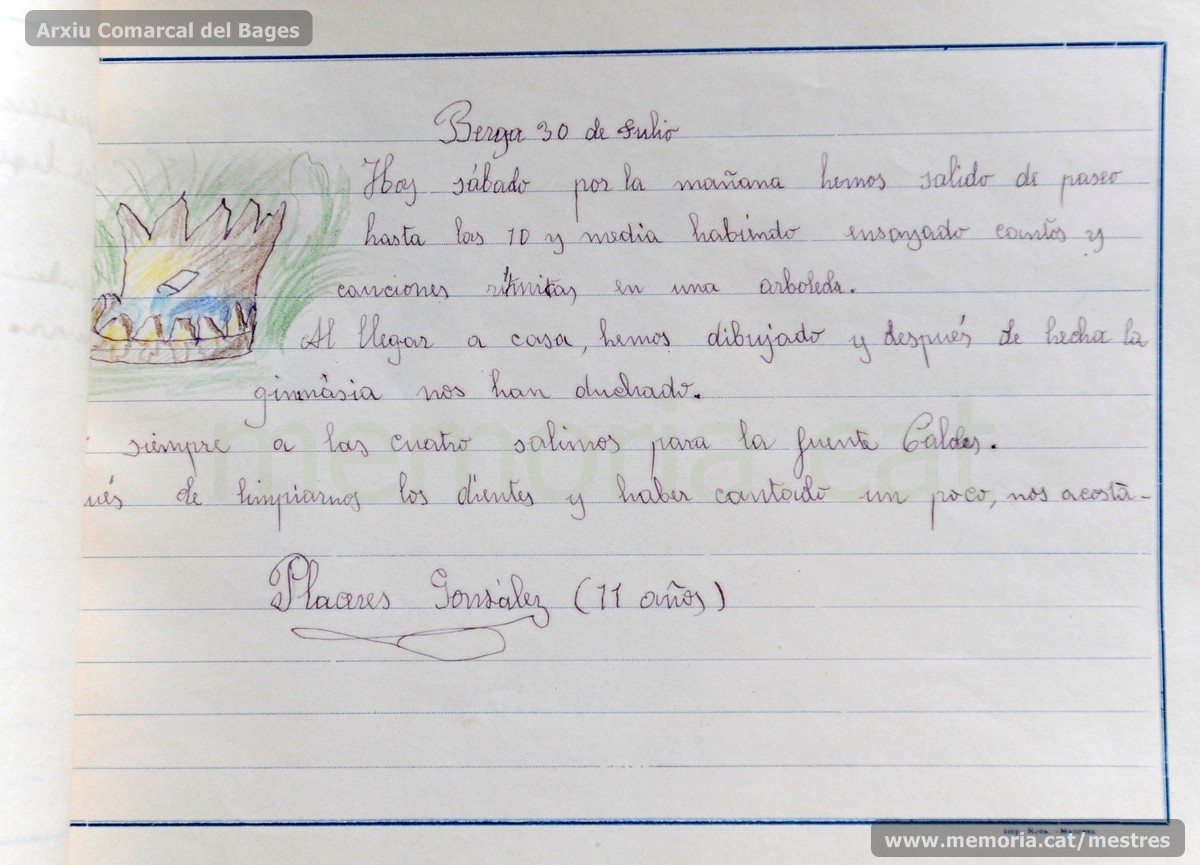 Arxiu Comarcal del Bages
Berga 30 de Julio
Hoy sábado por la mañana hemos salido de paseo
hasta las 10 y media habiendo ensayado cantos y
canciones rítmikas en una arboleda.
Al llegar a casa, hemos dibujado y después de hecha la
gimnásia nos han duchado.
siempre a las cuatro salimos para la fuente Caldes.
ués de limpiarnos los dientes y haber cantado un poco, nos acostá-
Placeres Gonsález (11 años)
memoria.cat
www.memoria.cat/mestres